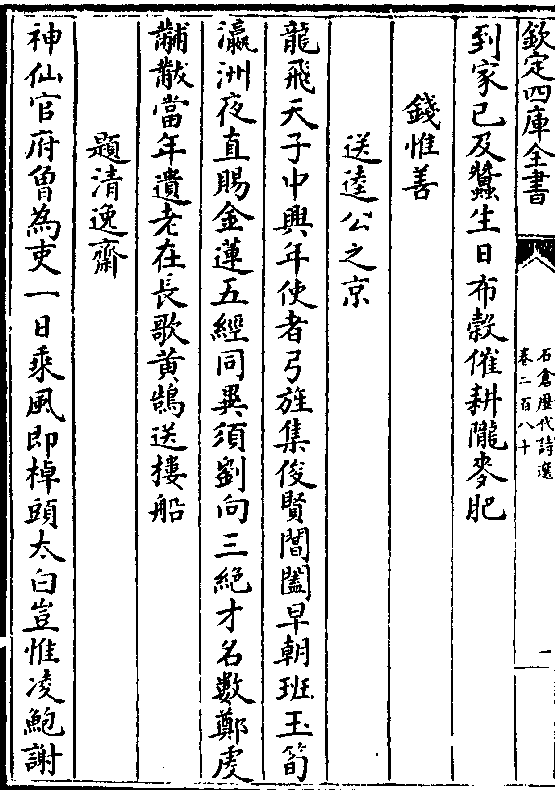 欽定四庫全書
石倉歴代詩選
卷二百八十
一
到家已及蠶生日布穀催耕隴麥肥
錢惟善
送逵公之京
龍飛天子中興年使者弓旌集俊賢閶闔早朝班玉筍
瀛洲夜直賜金蓮五經同異須劉向三絶才名數鄭䖍
黼黻當年遺老在長歌黄鵠送樓船
題清逸齋
神仙官府曽為吏一日乘風即棹頭太白豈惟凌鮑謝